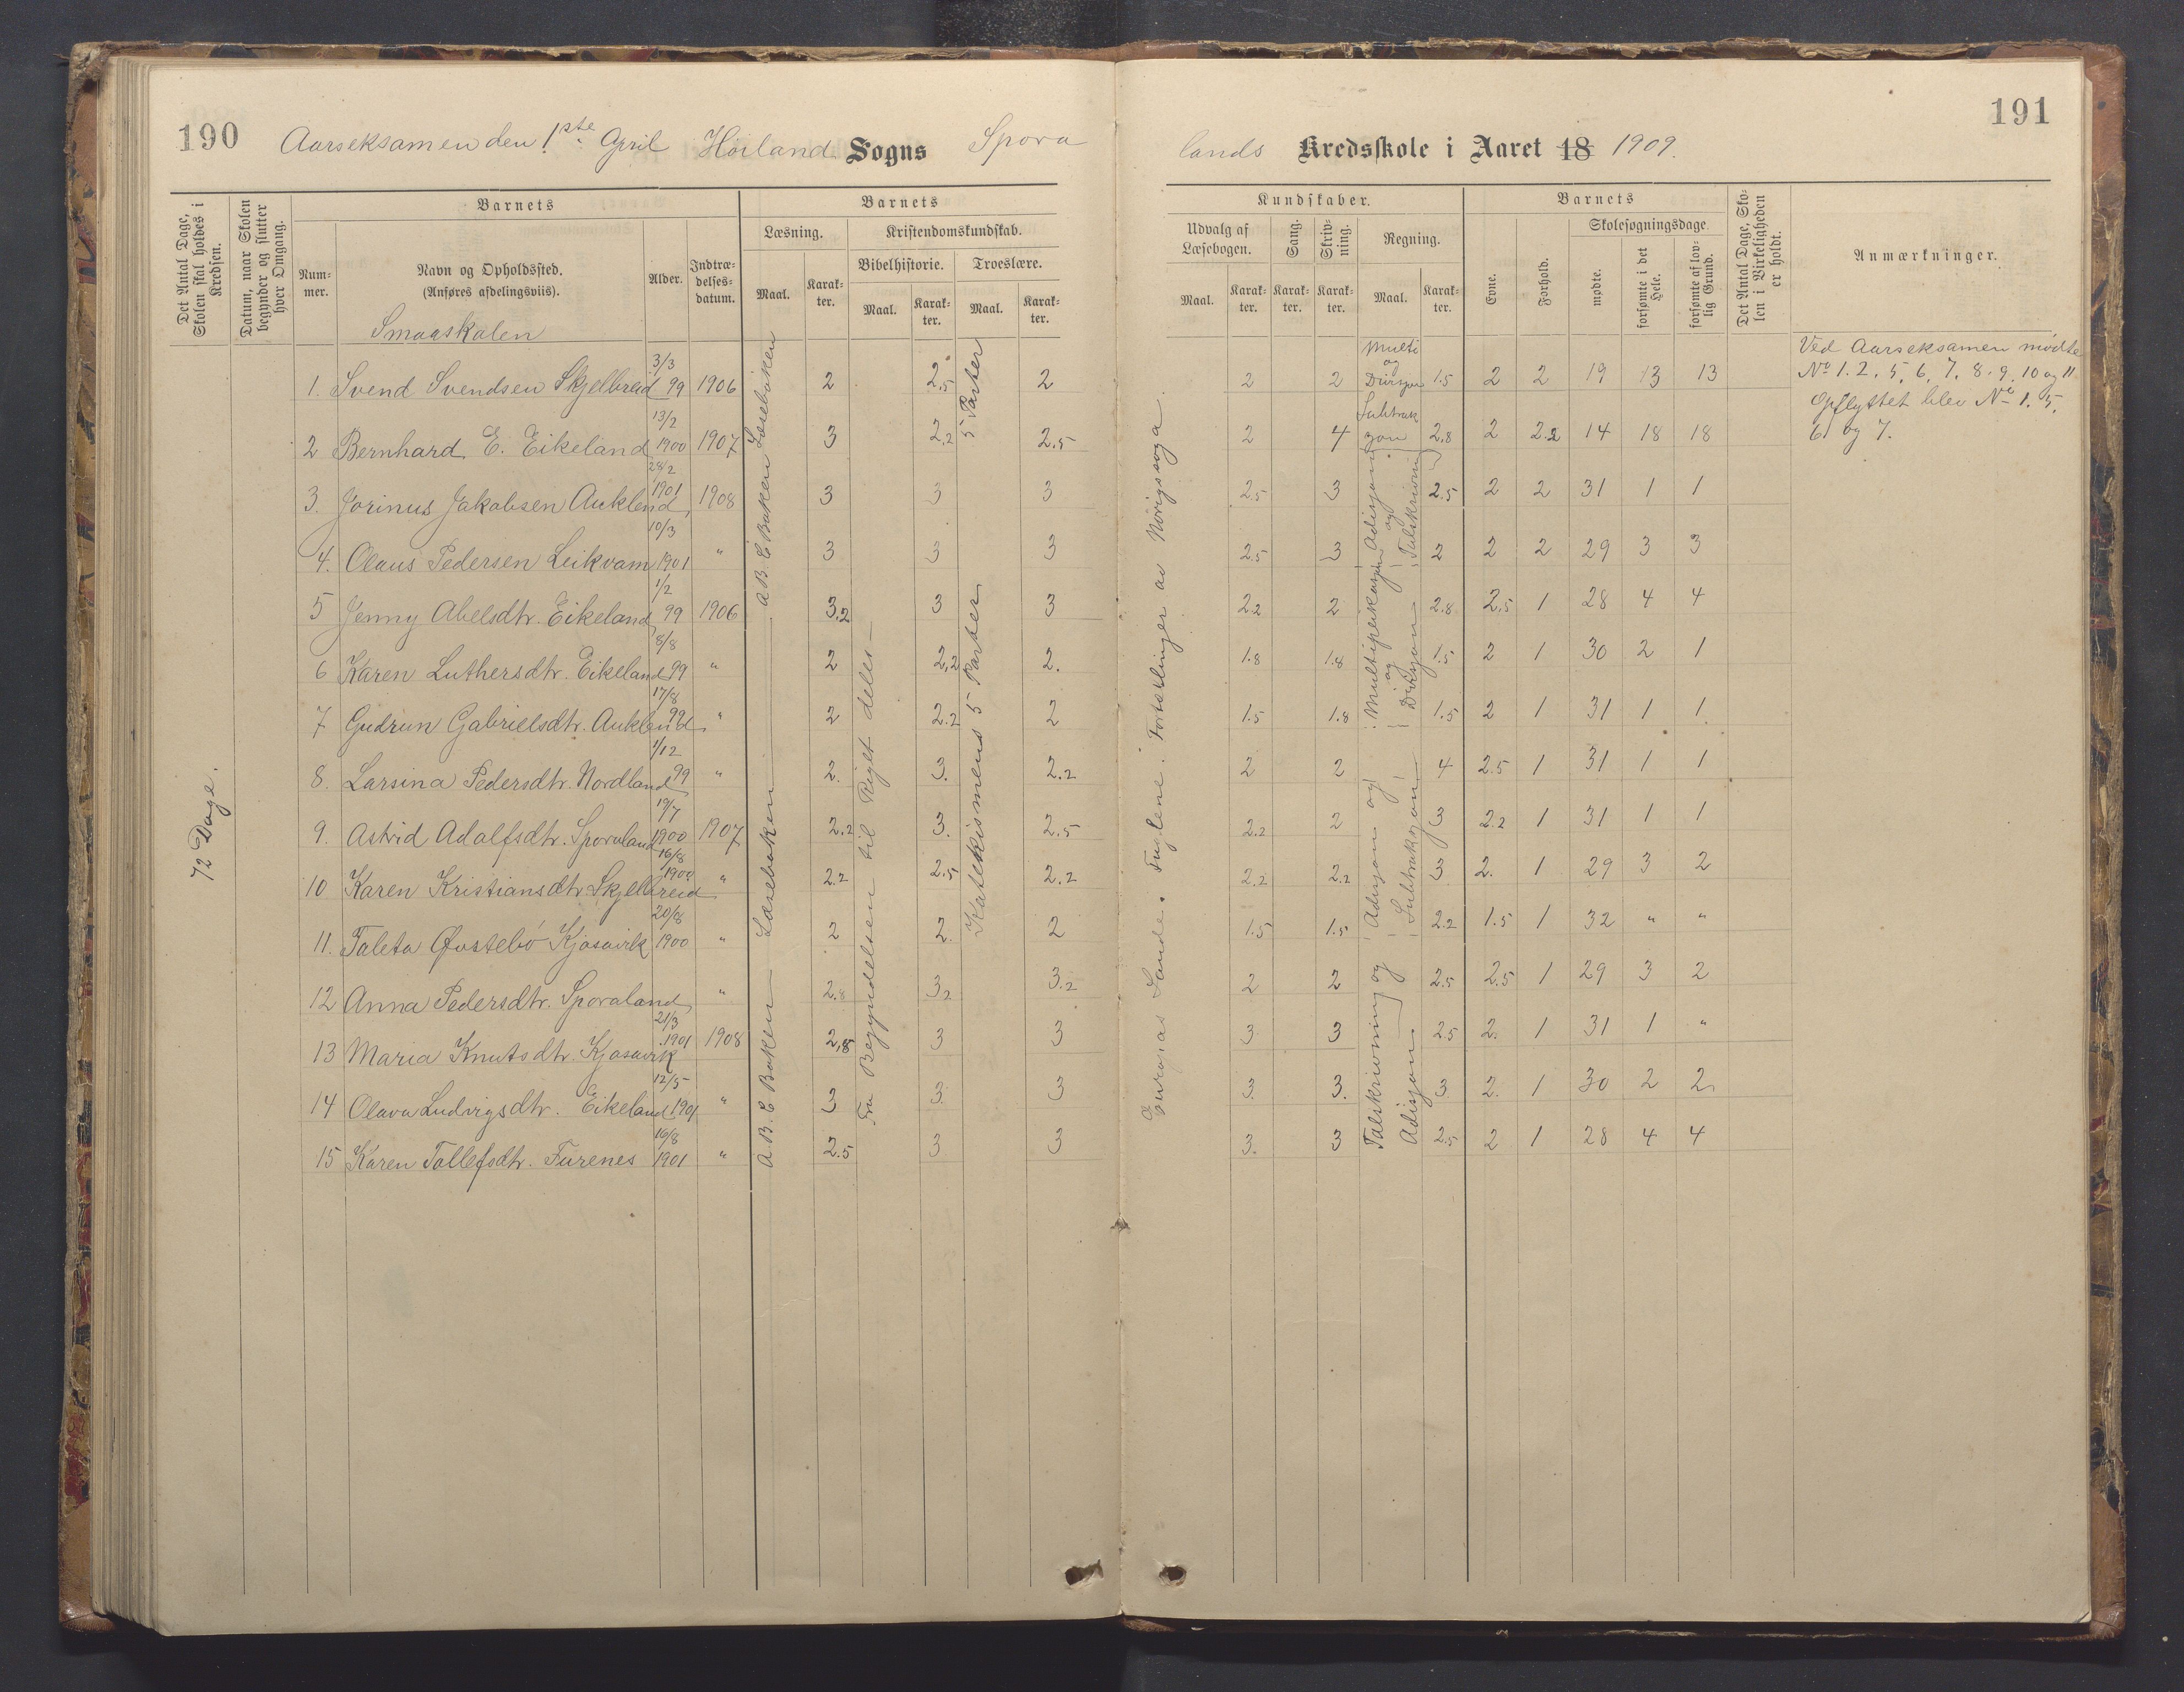 190
Aarseksamen den 1ste April Höiland Sogns Spora
Det Antal Dage, Skolen skal holdes i Kredsen.
Datum, naar Skolen begynder og slutter hver Omgang.
Barnets
Num-mer.
Navn og Opholdssted.
(Anføres afdelingsviis).
Smaaskolen
Alder.
Indtræ-delses-datum.
Barnets
Læsning.
Kristendomskundskab.
Bibelhistorie.
Troeslære.
Maal.
Karak-ter.
Maal.
Karak-ter.
Maal.
Karak-ter.
72 Dage.
1. Svend Svendsen Skjelbreid 3/3 99 1906 2 2.5 2
2 Bernhard E. Eikeland 13/2 1900 1907 3 2,2 2.5
3. Jorinus Jakobsen Auklend 28/2 1901 1908 3 3 3
4. Olaus Pedersen Leikvam 10/3 1901 " 3 3 3
5 Jenny Abelsdtr. Eikeland 1/2 99 1906 3,2 3 3
6 Karen Luthersdtr. Eikeland 8/8 99 " 2 2,2 2.
7 Gudrun Gabrielsdtr. Auklend 17/8 99 " 2 2.2 2
8. Larsina Pedersdtr. Nordland 1/12 99 " 2. 3. 2.2
9. Astrid Adolfsdtr. Sporaland 19/7 1900 1907 2.2 3. 2.5
10 Karen Kristiansdtr Skjelbreid 16/8 1900 " 2.2 2.5 2.2
11. Taleta Øvstebö Kjosavik 20/8 1900 " 2 2. 2
12 Anna Pedersdtr. Sporaland " 2.8 3.2 3.2
13 Maria Knutsdtr. Kjosavik 21/3 1901 1908 2,8 3 3
14 Olava Ludvigsdtr. Eikeland 12/5 1901 " 3 3. 3
15 Karen Tollefsdtr. Furenes 16/8 1901 " 2.5 3 3
A.B.C Boken Læseboken
A.B.C Boken — Læseboken
Fra Begyndelsen til Riget deles —
5 Parter
Katekismens 5 Parter
191
lands Kredsskole i Aaret 18 1909.
Kundskaber.
Udvalg af Læsebogen.
Sang.
Skriv-ning.
Regning.
Maal.
Karak-ter.
Karak-ter.
Karak-ter.
Maal.
Karak-ter.
Barnets
Evne.
Forhold.
Skolesøgningsdage
mødte.
forsømte i det Hele.
forsømte af lov-lig Grund.
Det Antal Dage, Sko-len i Virkeligheden er holdt.
Anmærkninger.
2 2 Multi og Divisjon 1.5 2 2 19 13 13
2 4 Subtrak zjon 2,8 2 2.2 14 18 18
2.5 3 2.5 2 2 31 1 1
2.5 3 2 2 2 29 3 3
2.2 2 2.8 2.5 1 28 4 4
1.8 1.8 1.5 2 1 30 2 1
1.5 1.8 1.5 2 1 31 1 1
2 2 4 2.5 1 31 1 1
2.2 2 3 2.2 1 31 1 1
2.2 2.2 3 2. 1 29 3 2
1.5 1.5 2.2 1.5 1 32 " "
2 2 2.5 2.5 1 29 3 2
3 3 2.5 2. 1 31 1 "
3. 3. 3 2. 1 30 2 2
3. 3 2.5 2 1 28 4 4
Europas Lande. Fuglene. Fortællinger av Norigssoga.
Adisjon og Talskrivning
Multiplikasjon og Divisjon
Adisjon og Subtraksjon
Talskrivning og Adisjon
Ved Aarseksamen mödte
No 1. 2. 5. 6. 7. 8. 9. 10 og 11
Opflyttet blev No 1. 5.
6 og 7.